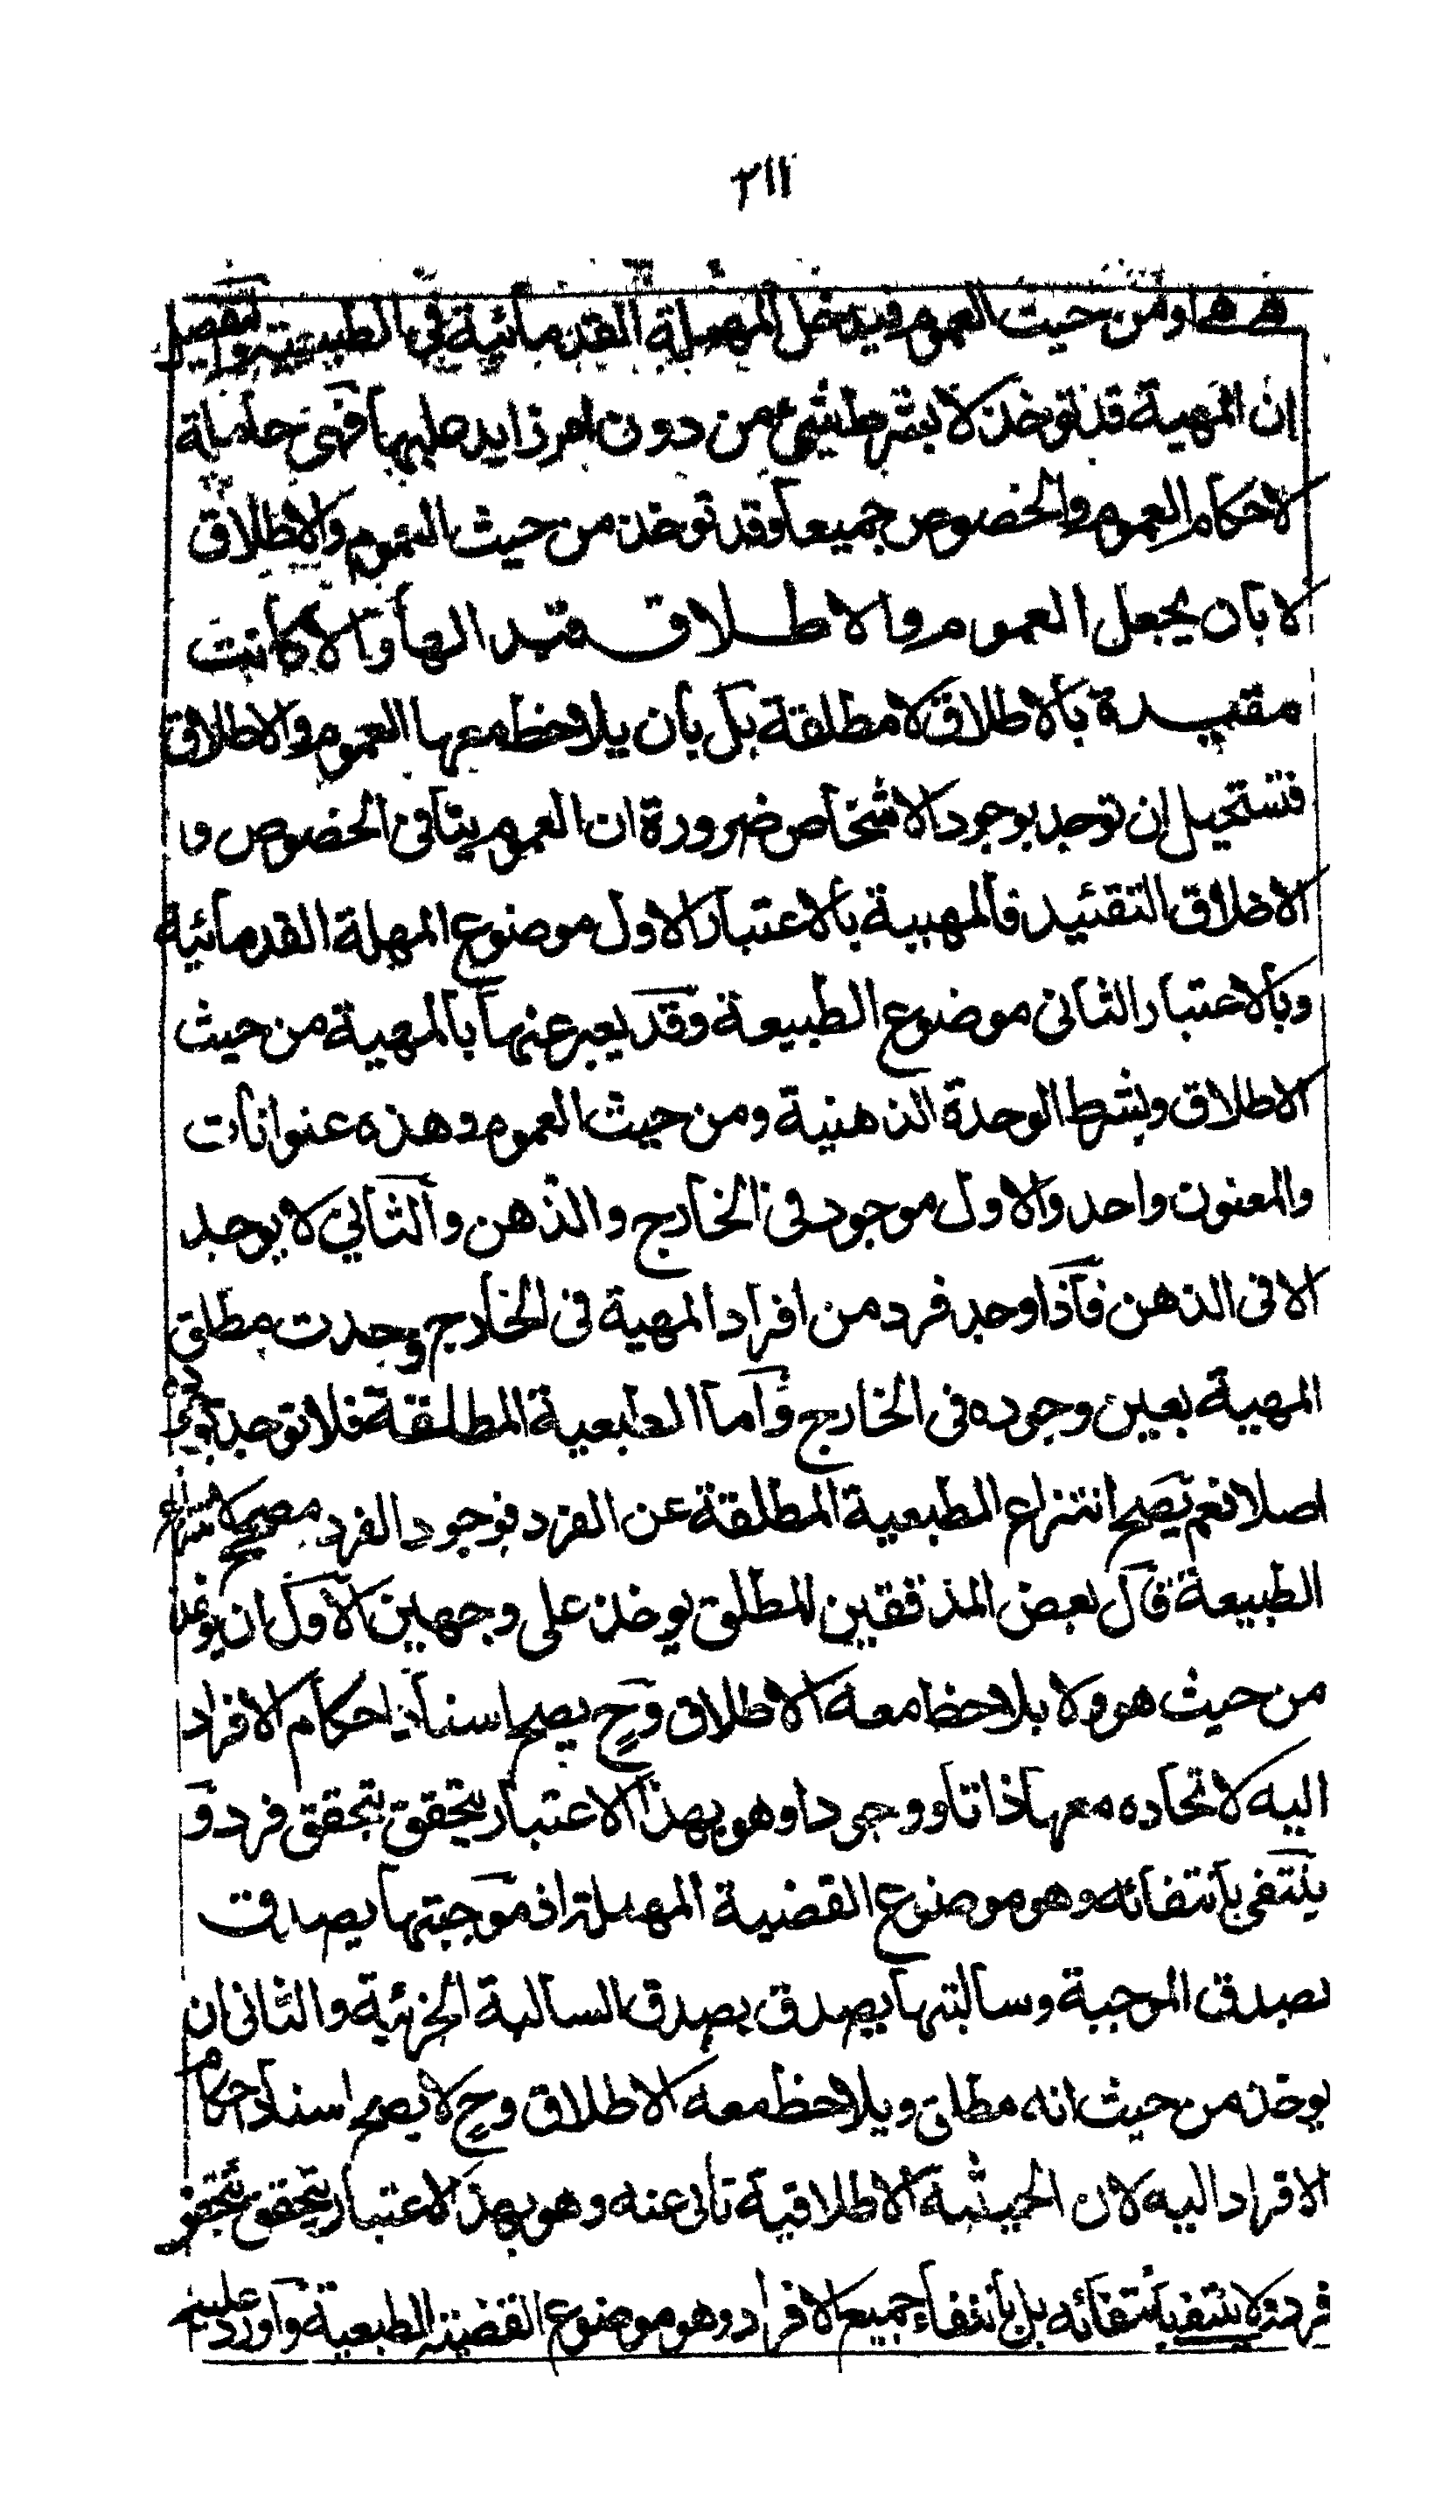 ٢١١
هي هي او من حيث العموم فيدخل المهملة القدمائية في الطبيعية وتفصيل
ان المهية قد توخذ لا بشرط شيء من دون امر زايد عليها فهي حاملة
لاحكام العموم والخصوص جميعا وقد توخذ من حيث العموم والاطلاق
لا بان يجعل العموم والاطلاق قيدا لها والا كانت
مقيدة بالاطلاق لا مطلقة بل بان يلاحظ معها العموم والاطلاق
فتستحيل ان توجد بوجود الاشخاص ضرورة ان العموم ينافى الخصوص و
الاطلاق التقئيد فالمهية بالاعتبار الاول موضوع المهملة القدمائية
وبالاعتبار الثانى موضوع الطبيعة وقد يعبر عنها بالمهية من حيث
الاطلاق وبشرط الوحدة الذهنية ومن حيث العموم وهذه عنوانات
والمعنون واحد والاول موجود فى الخارج والذهن والثاني لا يوجد
الا فى الذهن فاذا وجد فرد من افراد المهية فى الخارج وجدت مطلق
المهية بعين وجوده فى الخارج واما الطبعية المطلقة فلا توجد
اصلا نعم يصح انتزاع الطبعية المطلقة عن الفرد فوجود الفرد مصحح لانتزاع
الطبيعة قال بعض المدققين المطلق يوخذ على وجهين الاول ان يوخذ
من حيث هو ولا يلاحظ معه الاطلاق وح يصح اسناد احكام الافراد
اليه لاتحاده معها ذاتا ووجودا وهو بهذا الاعتبار يتحقق بتحقق فرد و
ينتفى بانتفائه وهو موضوع القضية المهملة اذ موجبتها يصدق
بصدق الموجبة وسالبتها يصدق بصدق السالبة الجزئية والثانى ان
يوخذ من حيث انه مطلق ويلاحظ معه الاطلاق وح لا يصح اسناد احكام
الافراد اليه لان الحيثية الاطلاقية تابى عنه وهو بهذا الاعتبار يتحقق بتحقق
فرد ولا ينتفى بانتفائه بل بانتفاء جميع الافراد وهو موضوع القضية الطبعية واورد عليه